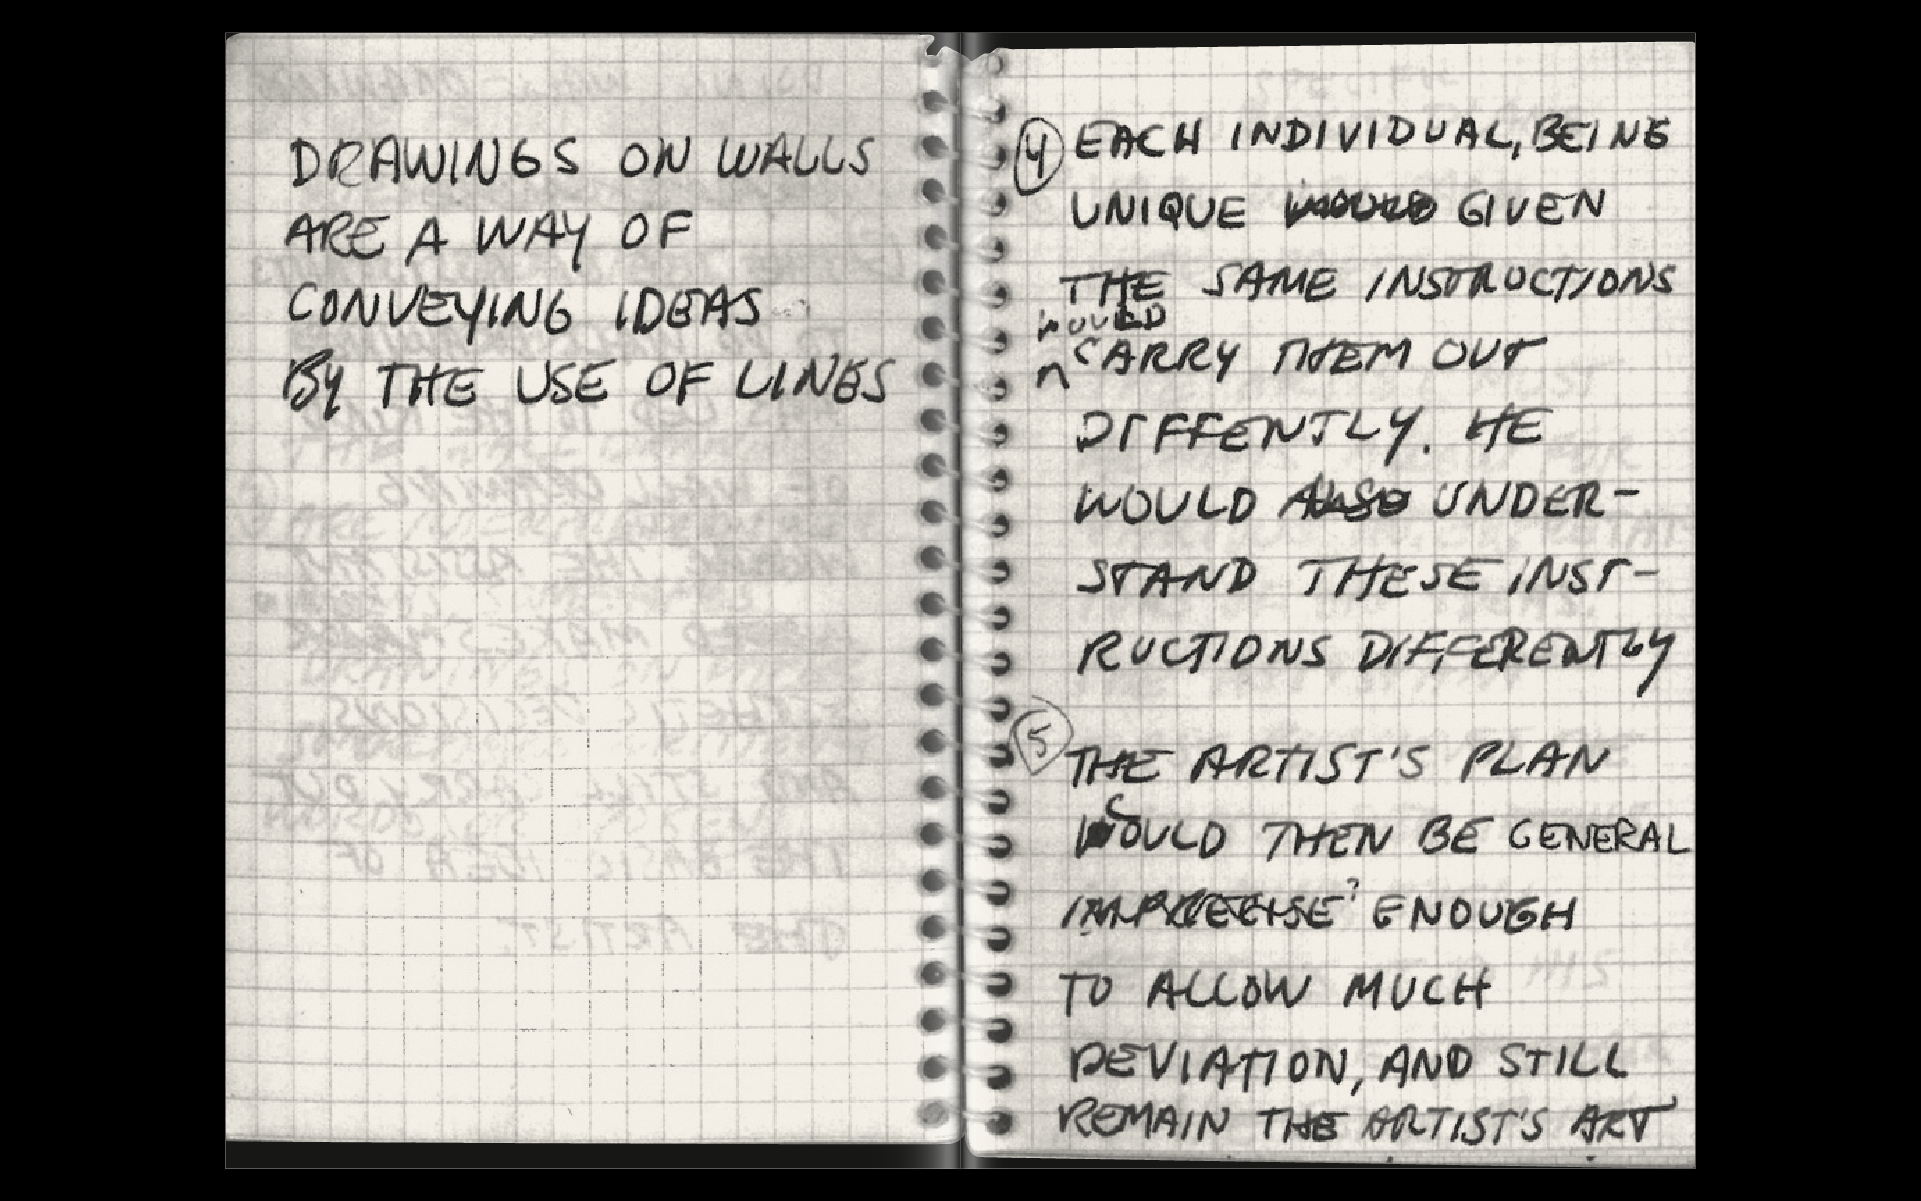 DRAWINGS ON WALLS
ARE A WAY OF
CONVEYING IDEAS
BY THE USE OF LINES
4 EACH INDIVIDUAL, BEING
UNIQUE WOULD GIVEN
THE SAME INSTRUCTIONS
WOULD
^ CARRY THEM OUT
DIFFENTLY. HE
WOULD ALSO UNDER-
STAND THESE INST-
RUCTIONS DIFFERENTLY
5 THE ARTIST'S PLAN
COULD THEN BE GENERAL
IMPRECISE? ENOUGH
TO ALLOW MUCH
DEVIATION, AND STILL
REMAIN THE ARTIST'S ART